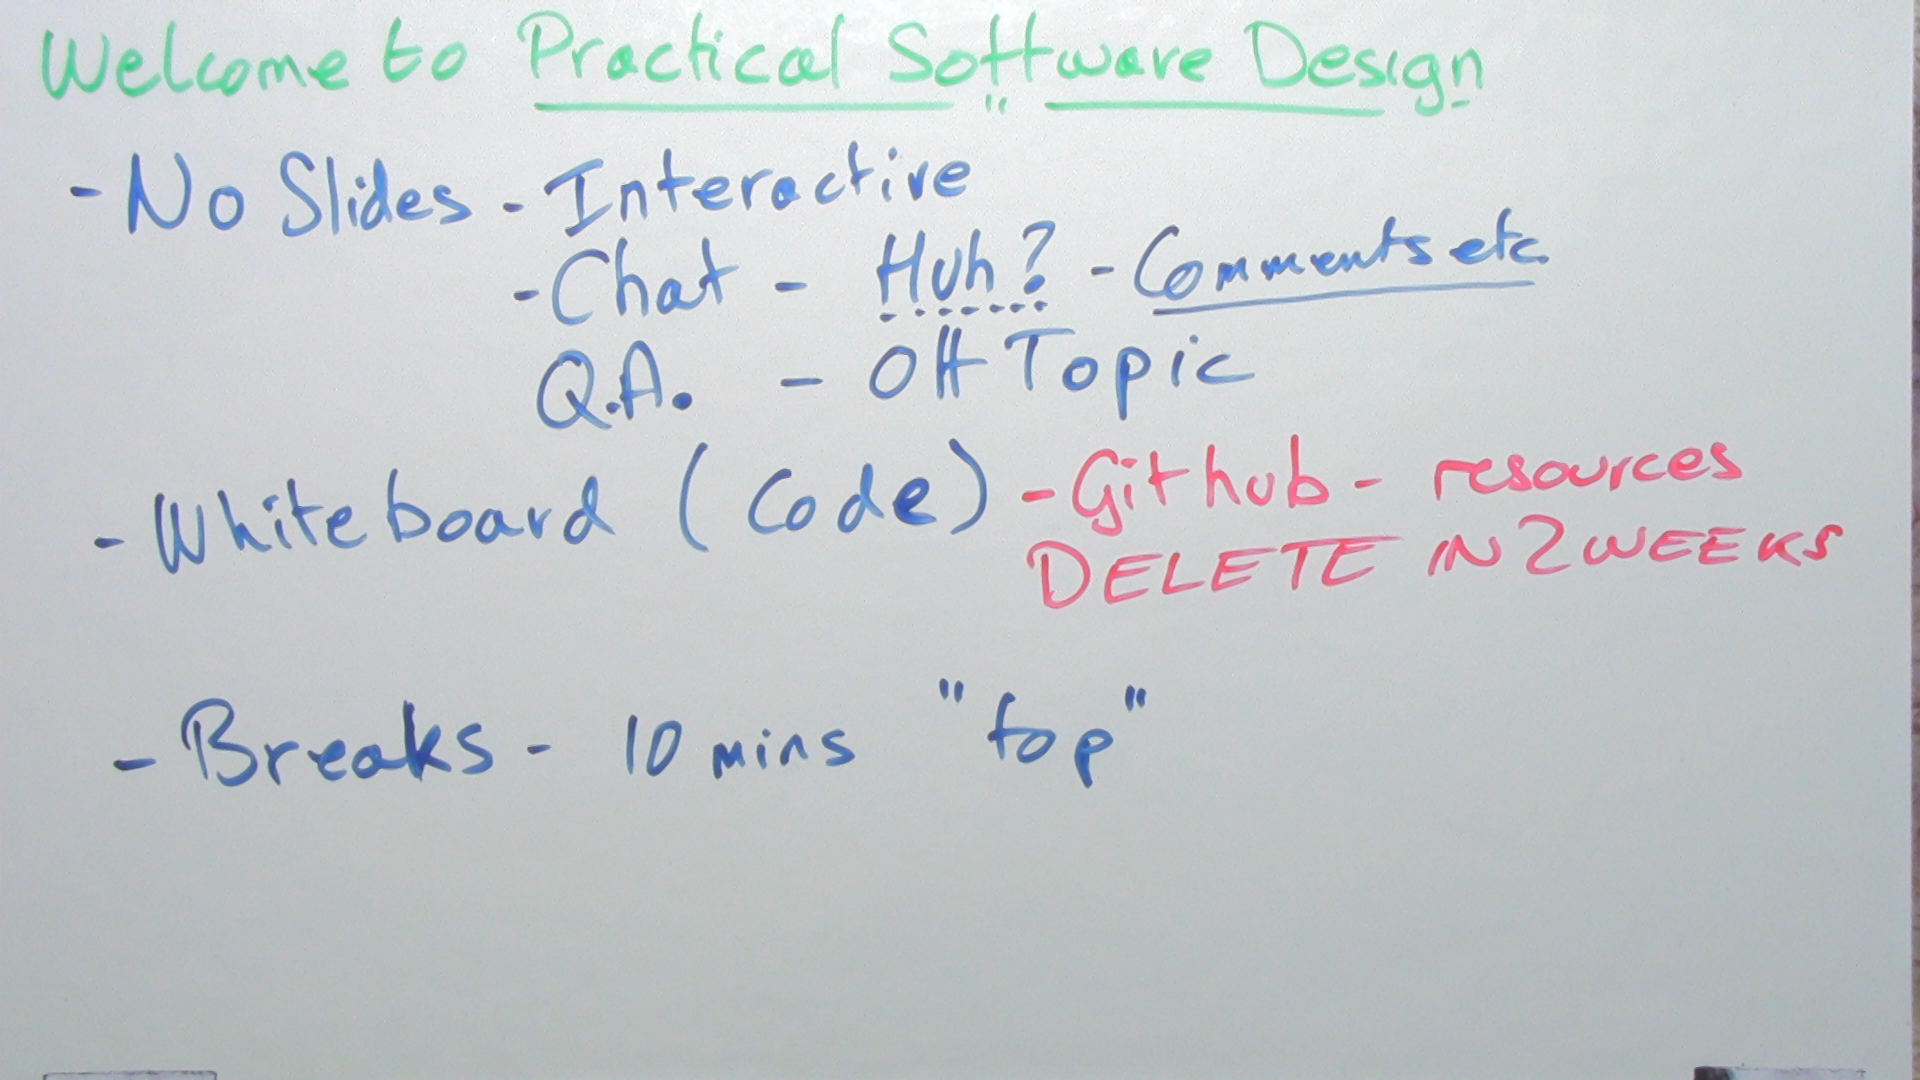 Welcome to Practical Software Design
- No Slides - Interactive
- Chat - Huh? - Comments etc.
Q.A. - Off Topic
- Whiteboard (Code) - Github - resources
DELETE IN 2 WEEKS
- Breaks - 10 mins "top"